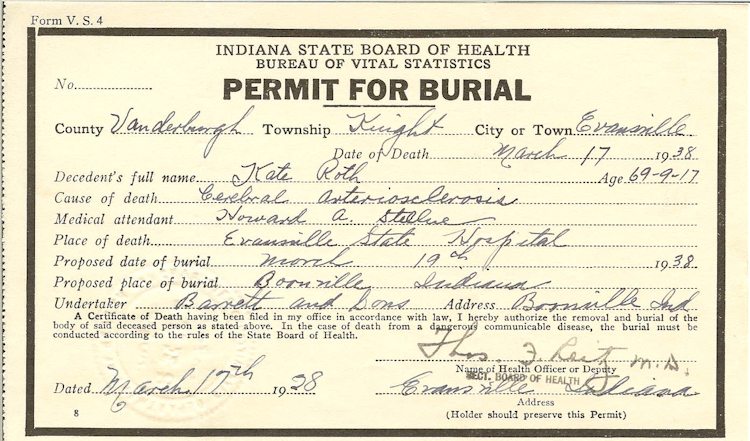 Form V. S. 4
INDIANA STATE BOARD OF HEALTH
BUREAU OF VITAL STATISTICS
No.
PERMIT FOR BURIAL
County Vanderburgh Township Knight City or Town Evansville
Date of Death March 17 1938
Decedent's full name Kate Roth Age 69-9-17
Cause of death Cerebral arteriosclerosis
Medical attendant Howard A. 
Place of death Evansville State Hospital
Proposed date of burial March 19th 1938
Proposed place of burial Boonville Indiana
Undertaker Barrett and Sons Address Boonville Ind
A Certificate of Death having been filed in my office in accordance with law, I hereby authorize the removal and burial of the
body of said deceased person as stated above. In the case of death from a dangerous communicable disease, the burial must be
conducted according to the rules of the State Board of Health.
Thos. F. Reitz M.D.
Name of Health Officer or Deputy
SECT. BOARD OF HEALTH
Dated March 17th 1938 Evansville Indiana
Address
8 (Holder should preserve this Permit)